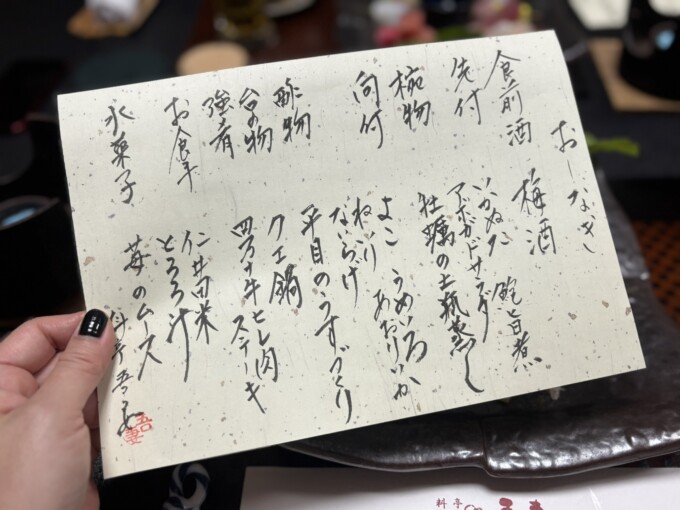 おしながき
食前酒 梅酒
先付 いかぬた 鮑旨煮
アボカドサラダ
椀物 牡蠣の土瓶蒸し
向付 よこ うめいろ
ねいり あおりいか
ないらげ
平目のうすづくり
酢物
台の物 クエ鍋
強肴 四万十牛ヒレ肉
ステーキ
お食事 仁井田米
とろろ汁
水菓子 苺のムース
料亭
料亭